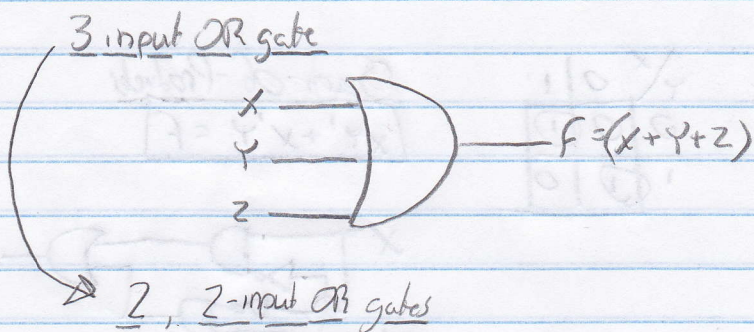 3 input OR gate
X
Y
F=(X+Y+Z)
Z
2, 2-input OR gates